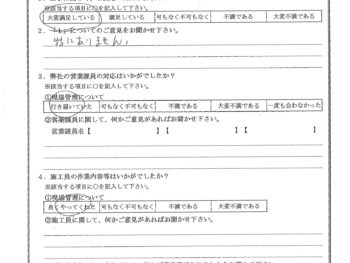 ※該当する項目に○を記入して下さい。
大変満足している 満足している 可もなく不可もなく 不満である 大変不満である
2．「1」についてのご意見をお聞かせ下さい。
特にありません。
3．弊社の営業課員の対応はいかがでしたか？
※該当する項目に○を記入して下さい。
①現場管理について
行き届いていた 可もなく不可もなく 不満である 大変不満である 一度も会わなかった
②営業課員に関して、何かご意見があればお聞かせ下さい。
営業課員名【 】【 】【 】
4．施工員の作業内容等はいかがでしたか？
※該当する項目に○を記入して下さい。
①現場管理について
良くやってくれた 可もなく不可もなく 不満である 大変不満である
②施工員に関して、何かご意見があればお聞かせ下さい。